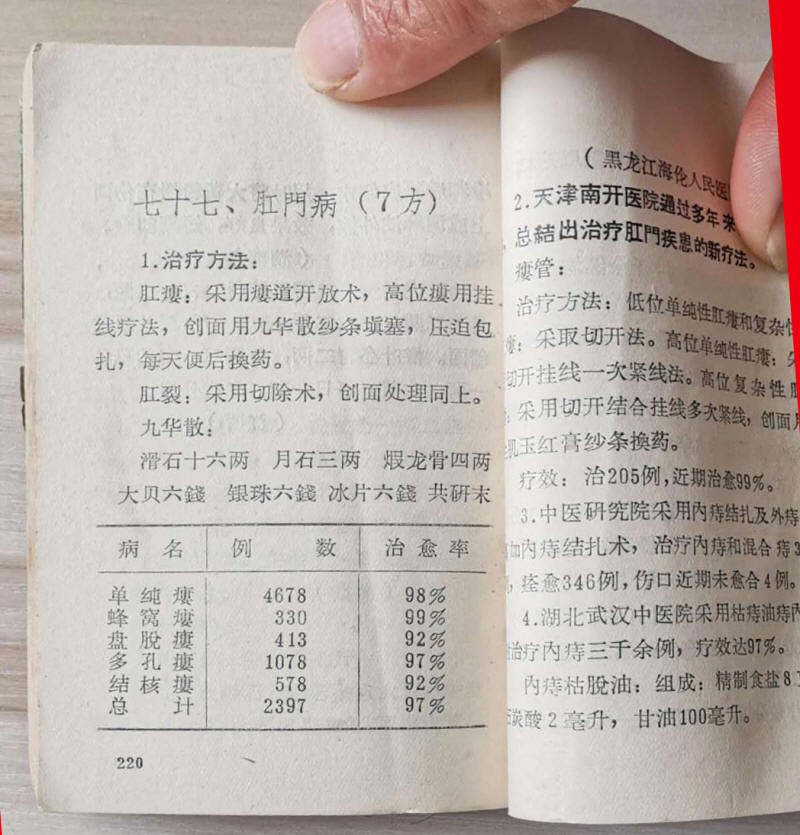 七十七、肛門病（7方）
1.治疗方法：
肛瘻：采用瘻道开放术，高位瘻用挂
线疗法，创面用九华散纱条填塞，压迫包
扎，每天便后换药。
肛裂：采用切除术，创面处理同上。
九华散：
滑石十六两 月石三两 煅龙骨四两
大贝六錢 银珠六錢 冰片六錢 共研末
病名 例数 治愈率
单纯瘻 4678 98%
蜂窝瘻 330 99%
盘脱瘻 413 92%
多孔瘻 1078 97%
结核瘻 578 92%
总计 2397 97%
220
（黑龙江海伦人民医
2.天津南开医院通过多年来
总結出治疗肛門疾患的新疗法。
瘻管：
治疗方法：低位单纯性肛瘻和复杂
瘻：采取切开法。高位单纯性肛瘻：
切开挂线一次紧线法。高位复杂性
：采用切开结合挂线多次紧线，创面
肌玉红膏纱条换药。
疗效：治205例，近期治愈99%。
3.中医研究院采用内痔结扎及外痔
加内痔结扎术，治疗内痔和混合痔3
，痊愈346例，伤口近期未愈合4例。
4.湖北武汉中医院采用枯痔油痔内
治疗内痔三千余例，疗效达97%。
内痔枯脱油：组成：精制食盐8
炭酸2毫升，甘油100毫升。